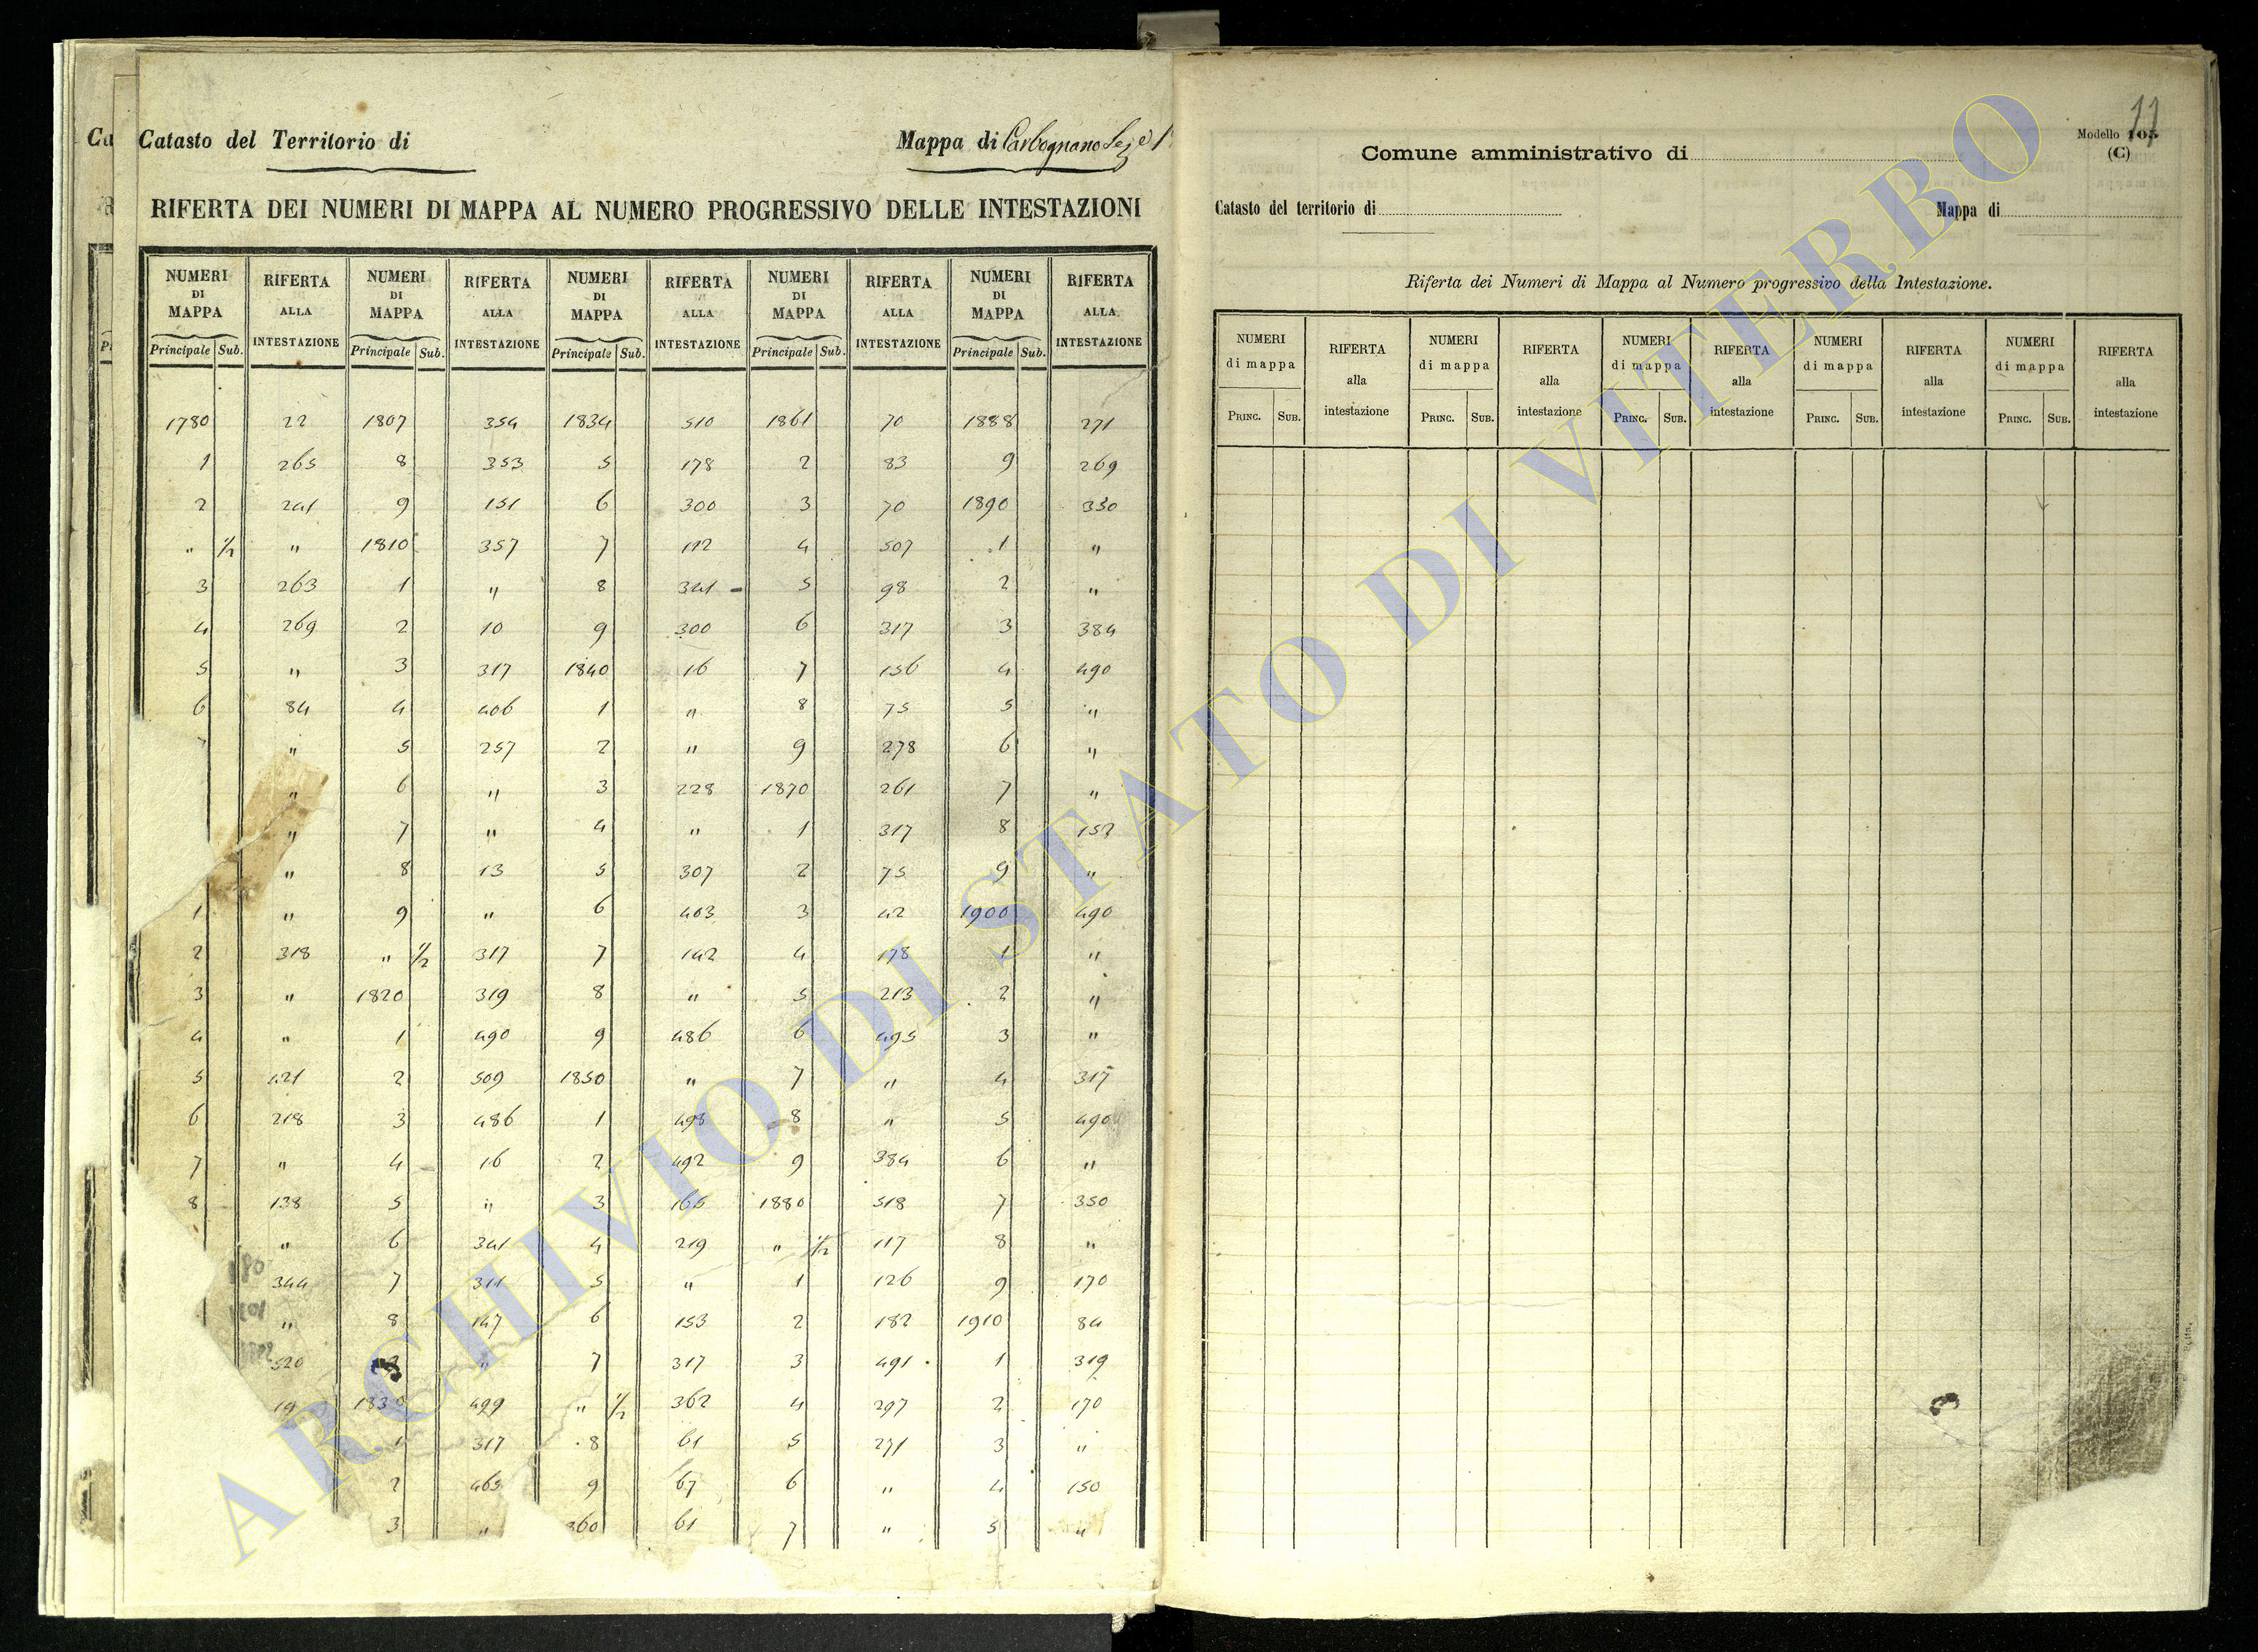 Catasto del Territorio di
Mappa di Carbognano Sez.e 1
RIFERTA DEI NUMERI DI MAPPA AL NUMERO PROGRESSIVO DELLE INTESTAZIONI
NUMERI DI MAPPA RIFERTA ALLA INTESTAZIONE NUMERI DI MAPPA RIFERTA ALLA INTESTAZIONE NUMERI DI MAPPA RIFERTA ALLA INTESTAZIONE NUMERI DI MAPPA RIFERTA ALLA INTESTAZIONE NUMERI DI MAPPA RIFERTA ALLA INTESTAZIONE
Principale Sub. Principale Sub. Principale Sub. Principale Sub. Principale Sub.
1780 22 1807 354 1834 510 1861 70 1888 271
1 265 8 353 5 178 2 83 9 269
2 241 9 151 6 300 3 70 1890 330
" 1/2 " 1810 357 7 112 4 507 1 "
3 263 1 " 8 341 5 98 2 "
4 269 2 10 9 300 6 317 3 384
5 " 3 317 1840 16 7 156 4 490
6 84 4 406 1 " 8 75 5 "
" 5 257 2 " 9 278 6 "
" 6 " 3 228 1870 261 7 "
" 7 " 4 " 1 317 8 152
" 8 13 5 307 2 75 9 "
1 " 9 " 6 403 3 42 1900 490
2 318 " 1/2 317 7 142 4 178 1 "
3 " 1820 319 8 " 5 213 2 "
4 " 1 490 9 486 6 495 3 "
5 421 2 509 1850 " 7 " 4 317
6 218 3 486 1 498 8 " 5 490
7 " 4 16 2 492 9 384 6 "
8 138 5 " 3 165 1880 518 7 350
" 6 341 4 219 " 1/2 117 8 "
344 7 311 5 " 1 126 9 170
" 8 147 6 153 2 182 1910 84
520 " 7 317 3 491 1 319
19 499 " 1/2 362 4 297 2 170
1 317 8 61 5 271 3 "
2 465 9 67 6 " 4 150
3 " 360 61 7 " 5 "
11
Modello 105
(C)
Comune amministrativo di
Catasto del territorio di Mappa di
Riferta dei Numeri di Mappa al Numero progressivo della Intestazione.
NUMERI di mappa RIFERTA alla intestazione NUMERI di mappa RIFERTA alla intestazione NUMERI di mappa RIFERTA alla intestazione NUMERI di mappa RIFERTA alla intestazione NUMERI di mappa RIFERTA alla intestazione
PRINC. SUB. PRINC. SUB. PRINC. SUB. PRINC. SUB. PRINC. SUB.
ARCHIVIO DI STATO DI VITERBO